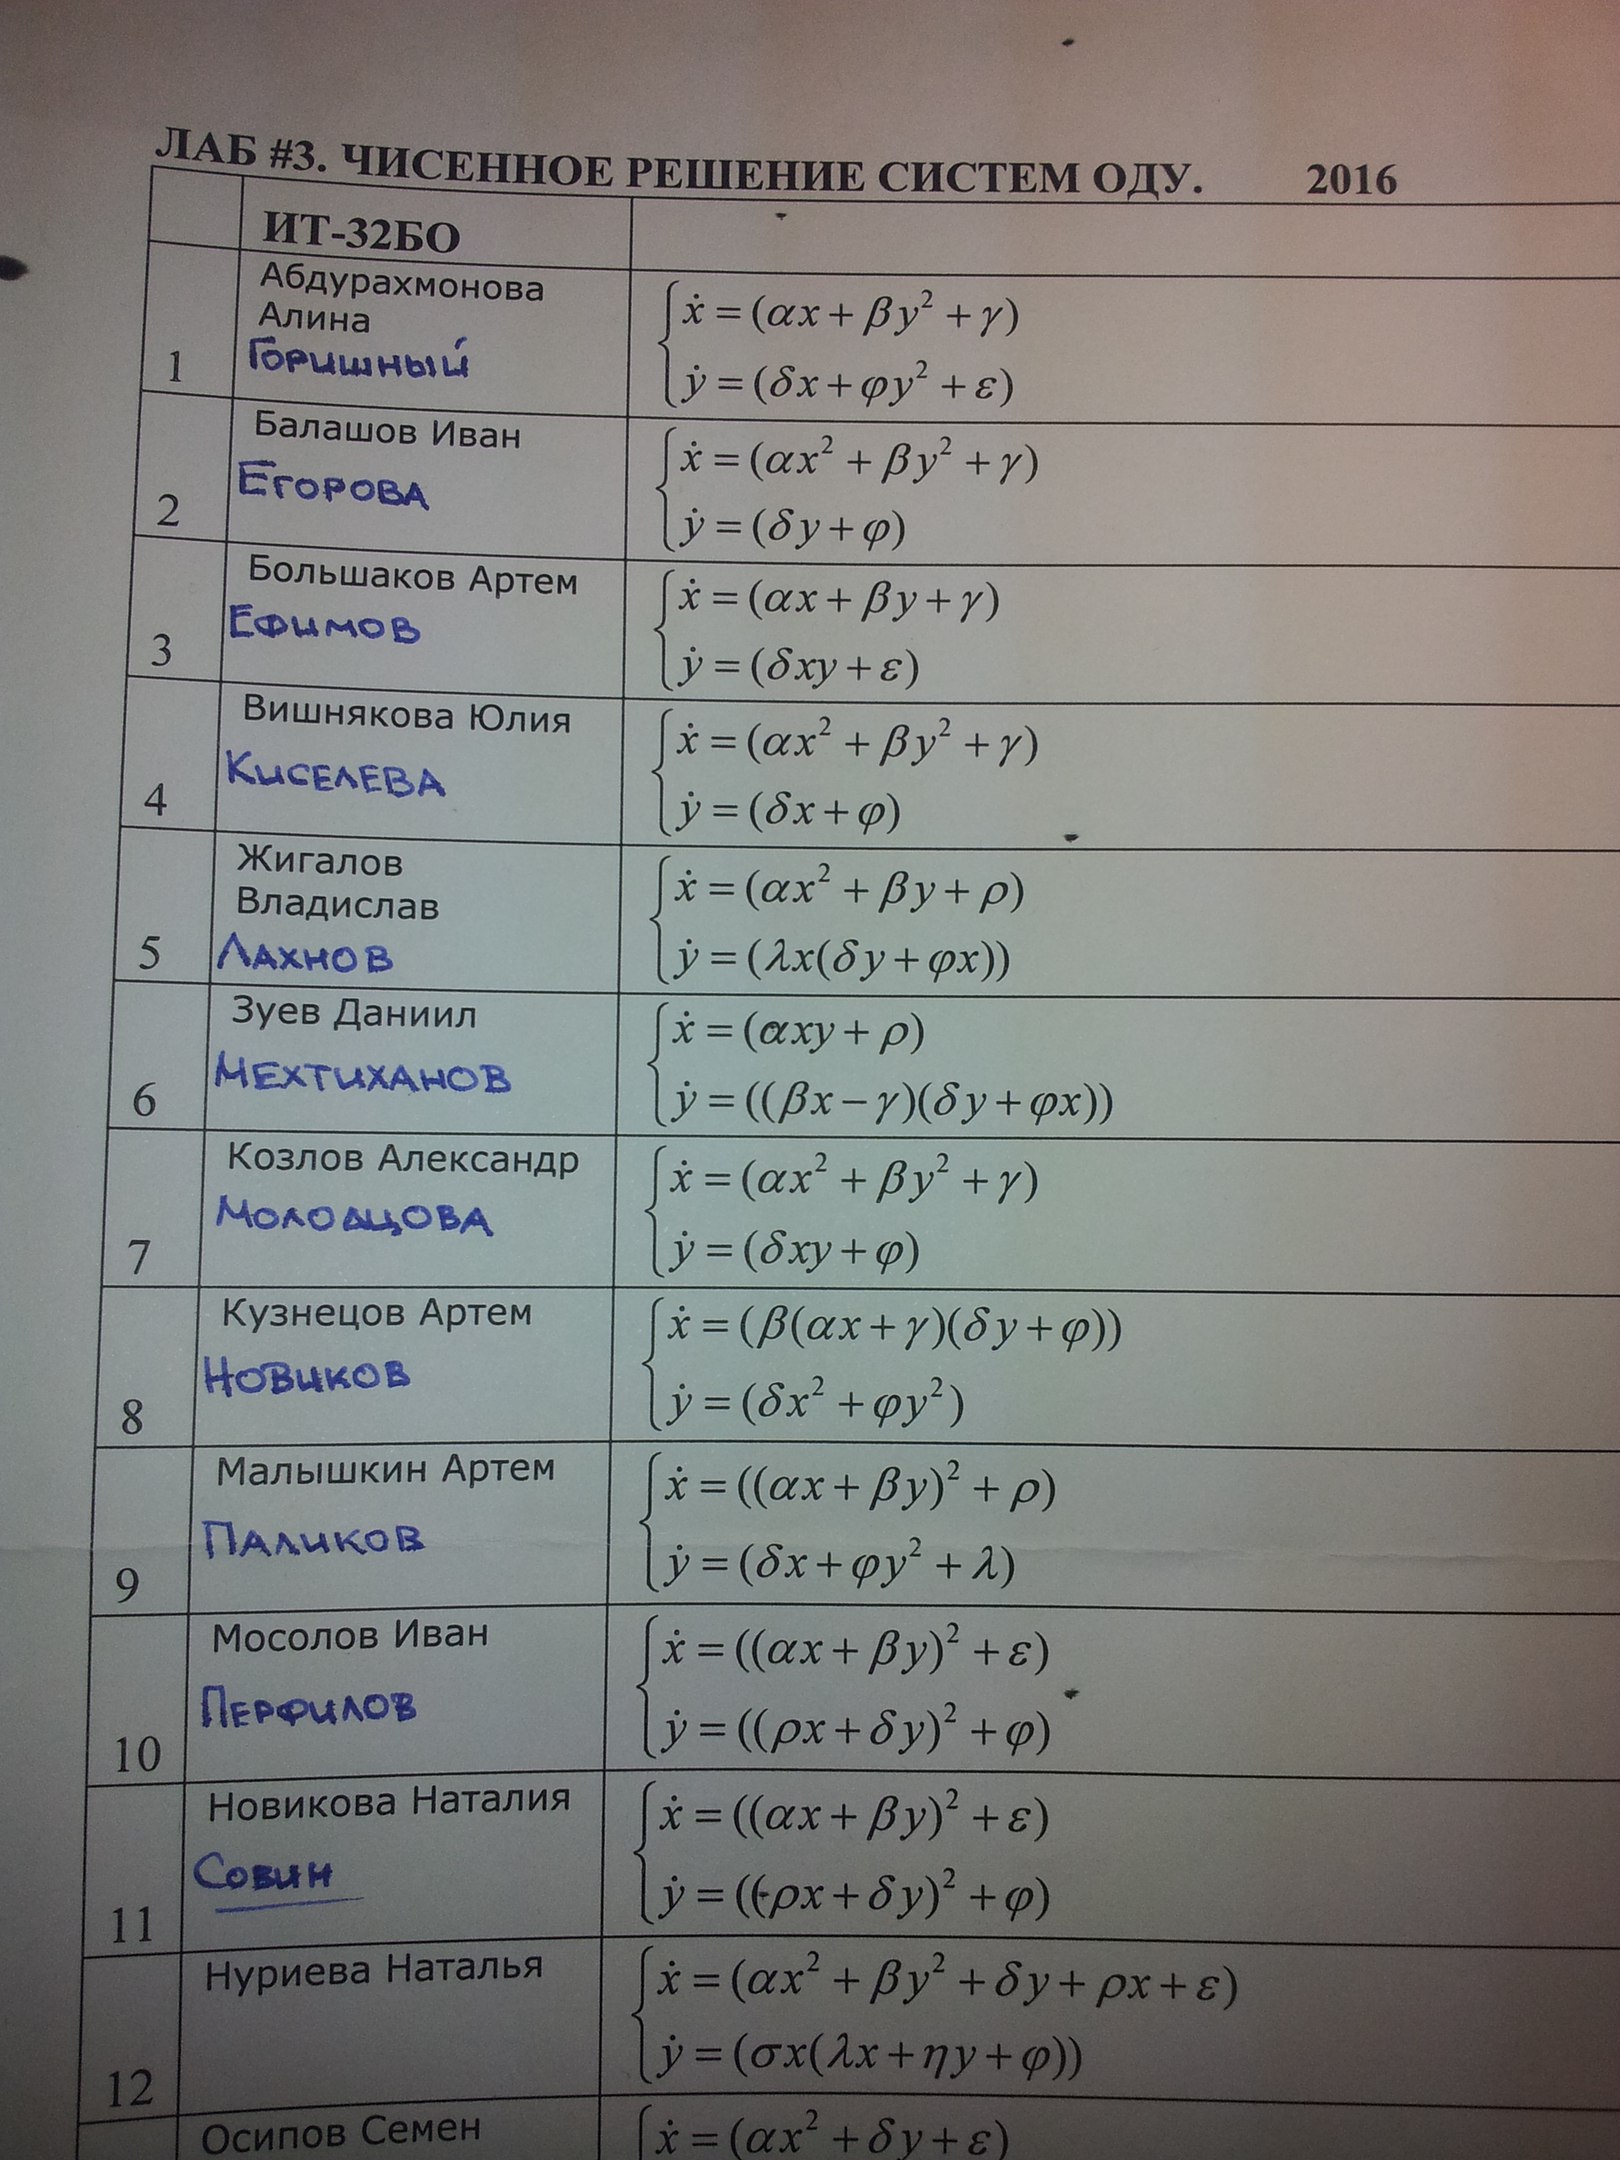 ЛАБ #3. ЧИСЕННОЕ РЕШЕНИЕ СИСТЕМ ОДУ. 2016
ИТ-32БО
Абдурахмонова
Алина
Горишный
1
ẋ = (αx + βy² + γ)
ẏ = (δx + φy² + ε)
Балашов Иван
Егорова
2
ẋ = (αx² + βy² + γ)
ẏ = (δy + φ)
Большаков Артем
Ефимов
3
ẋ = (αx + βy + γ)
ẏ = (δxy + ε)
Вишнякова Юлия
Киселева
4
ẋ = (αx² + βy² + γ)
ẏ = (δx + φ)
Жигалов
Владислав
Лахнов
5
ẋ = (αx² + βy + ρ)
ẏ = (λx(δy + φx))
Зуев Даниил
Мехтиханов
6
ẋ = (αxy + ρ)
ẏ = ((βx − γ)(δy + φx))
Козлов Александр
Молодцова
7
ẋ = (αx² + βy² + γ)
ẏ = (δxy + φ)
Кузнецов Артем
Новиков
8
ẋ = (β(αx + γ)(δy + φ))
ẏ = (δx² + φy²)
Малышкин Артем
Паликов
9
ẋ = ((αx + βy)² + ρ)
ẏ = (δx + φy² + λ)
Мосолов Иван
Перфилов
10
ẋ = ((αx + βy)² + ε)
ẏ = ((ρx + δy)² + φ)
Новикова Наталия
Совин
11
ẋ = ((αx + βy)² + ε)
ẏ = ((-ρx + δy)² + φ)
Нуриева Наталья
12
ẋ = (αx² + βy² + δy + ρx + ε)
ẏ = (σx(λx + ηy + φ))
Осипов Семен
ẋ = (αx² + δy + ε)